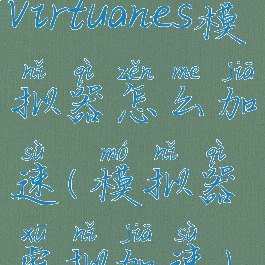 Virtuanes模
nǐ qì zěn me jiā
拟器怎么加
sù mó nǐ qì
速(模拟器
xū nǐ jiā sù
拟加速)